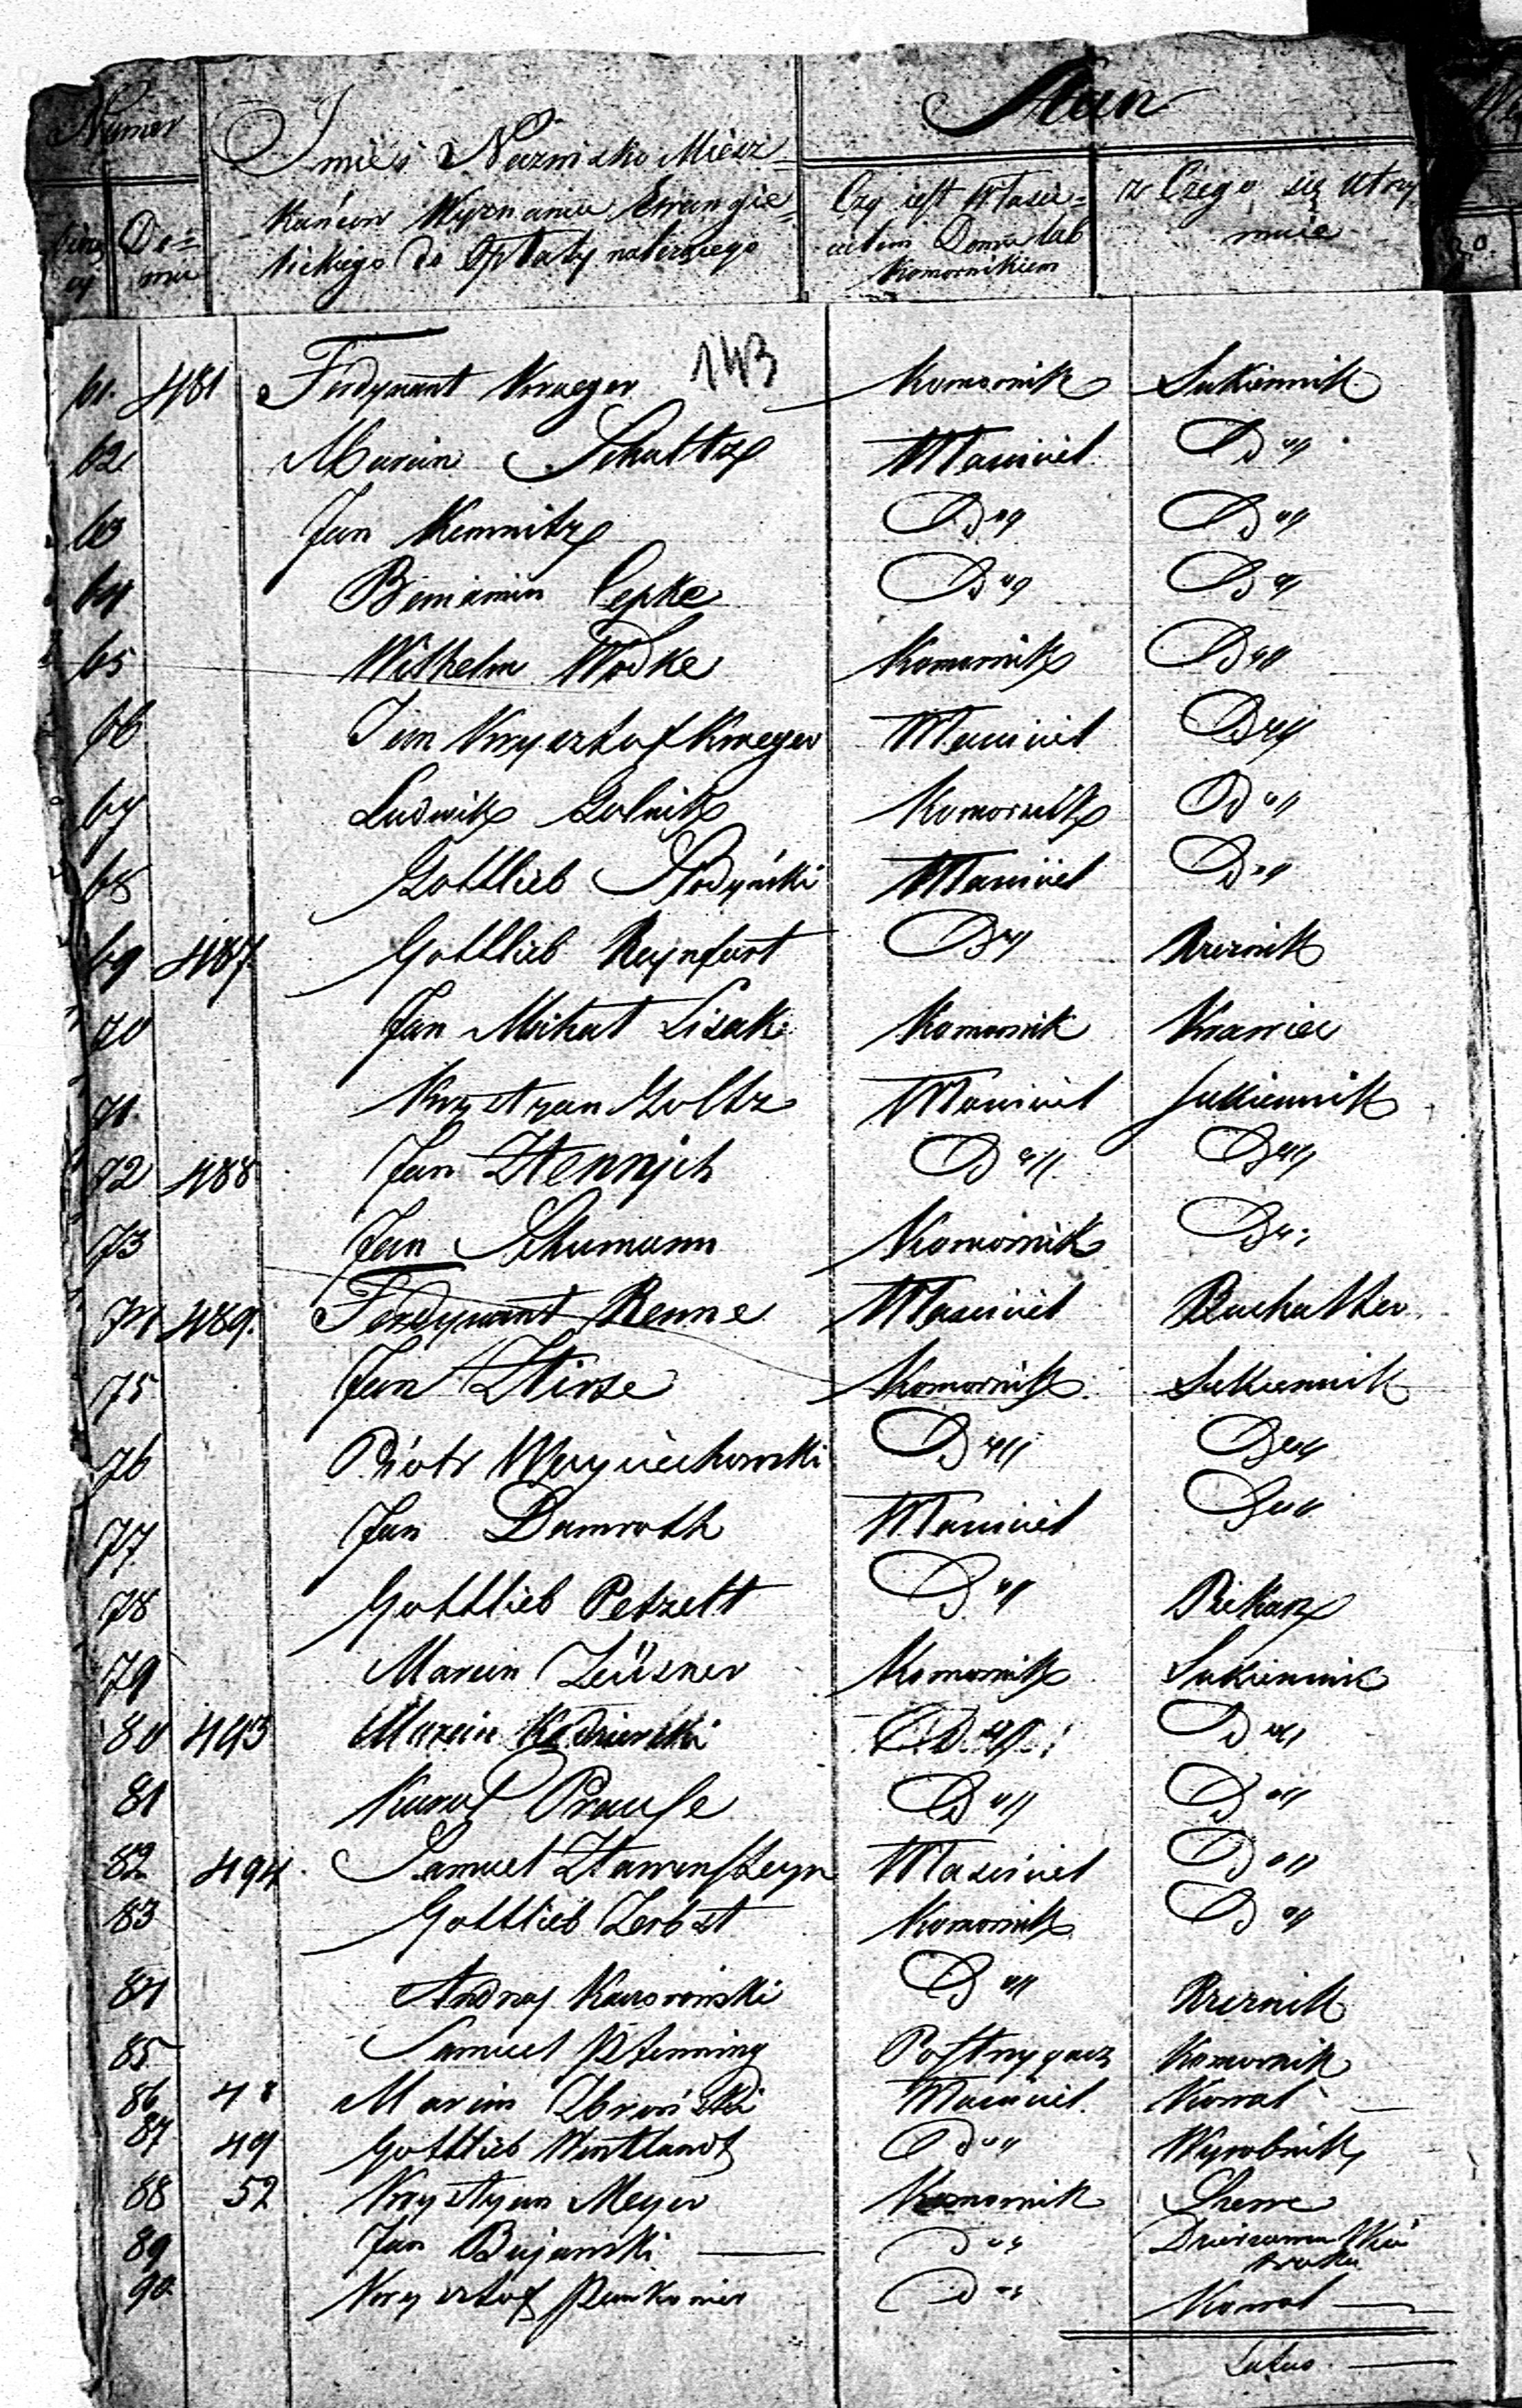 Numer
Stan
Imie i Nazwisko Miesz=
kańcow Wyznania Ewangie=
lickiego do Opłaty należnego
De=
mu
Czy iest Właści=
cielem Domu lub
Komornikiem
z Czego się utrzy
muie
143
61. 481 Ferdynant Krueger Komornik Sukiennik
62 Marcin Schultz Właściciel D"
63 Jan Kemnitz D" D"
64 Beniamin Cepke D" D"
65 Wilhelm Wodke Komornik D"
66 Jan Krysztof Krueger Właściciel D"
67 Ludwik Golnik Komornik D"
68 Gottlieb Właściciel D"
69 487 Gottlieb Reynfart D" Rzeznik
70 Jan Michał Lisak Komornik Krawiec
71. Krystyan Goltz Właściciel Sukiennik
72 488 Jan Hennych D" D"
73 Jan Schumann Komornik D"
74 489. Ferdynant Renne Właściciel Buchalter
75 Jan Hirse Komornik Sukiennik
76 Piotr Woyciechowski D" D"
77 Jan Damroth Właściciel D"
78 Gottlieb Petzelt D" Piekarz
79 Marcin Zeüsner Komornik Sukiennik
80 493 Marcin Kędzierski D" D"
81 Karol Prause D" D"
82 494. Samuel Hawensteyn Właściciel D"
83 Gottlieb Zerbst Komornik D"
84 Andrzej D" Rzeznik
85 Samuel Pfenning Komornik
86 48 Marcin Właściciel. Kowal
87 49 Gottlieb Wentlandt D" Wyrobnik
88 52 Krystyan Meyer Komornik Szewc
89 Jan Bujarski D"
90 Krysztof D" Kowal
Latus.